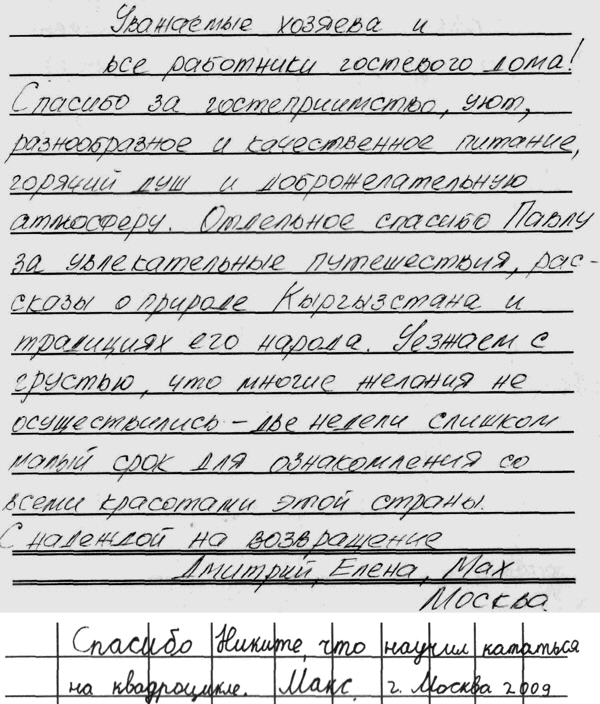 Уважаемые хозяева и
все работники гостевого дома!
Спасибо за гостеприимство, уют,
разнообразное и качественное питание,
горячий душ и доброжелательную
атмосферу. Отдельное спасибо Павлу
за увлекательные путешествия, рас-
сказы о природе Кыргызстана и
традициях его народа. Уезжаем с
грустью, что многие желания не
осуществились - две недели слишком
малый срок для ознакомления со
всеми красотами этой страны.
С надеждой на возвращение
Дмитрий, Елена, Мах
Москва
Спасибо Никите, что научил кататься
на квадроцикле. Макс. г. Москва 2009